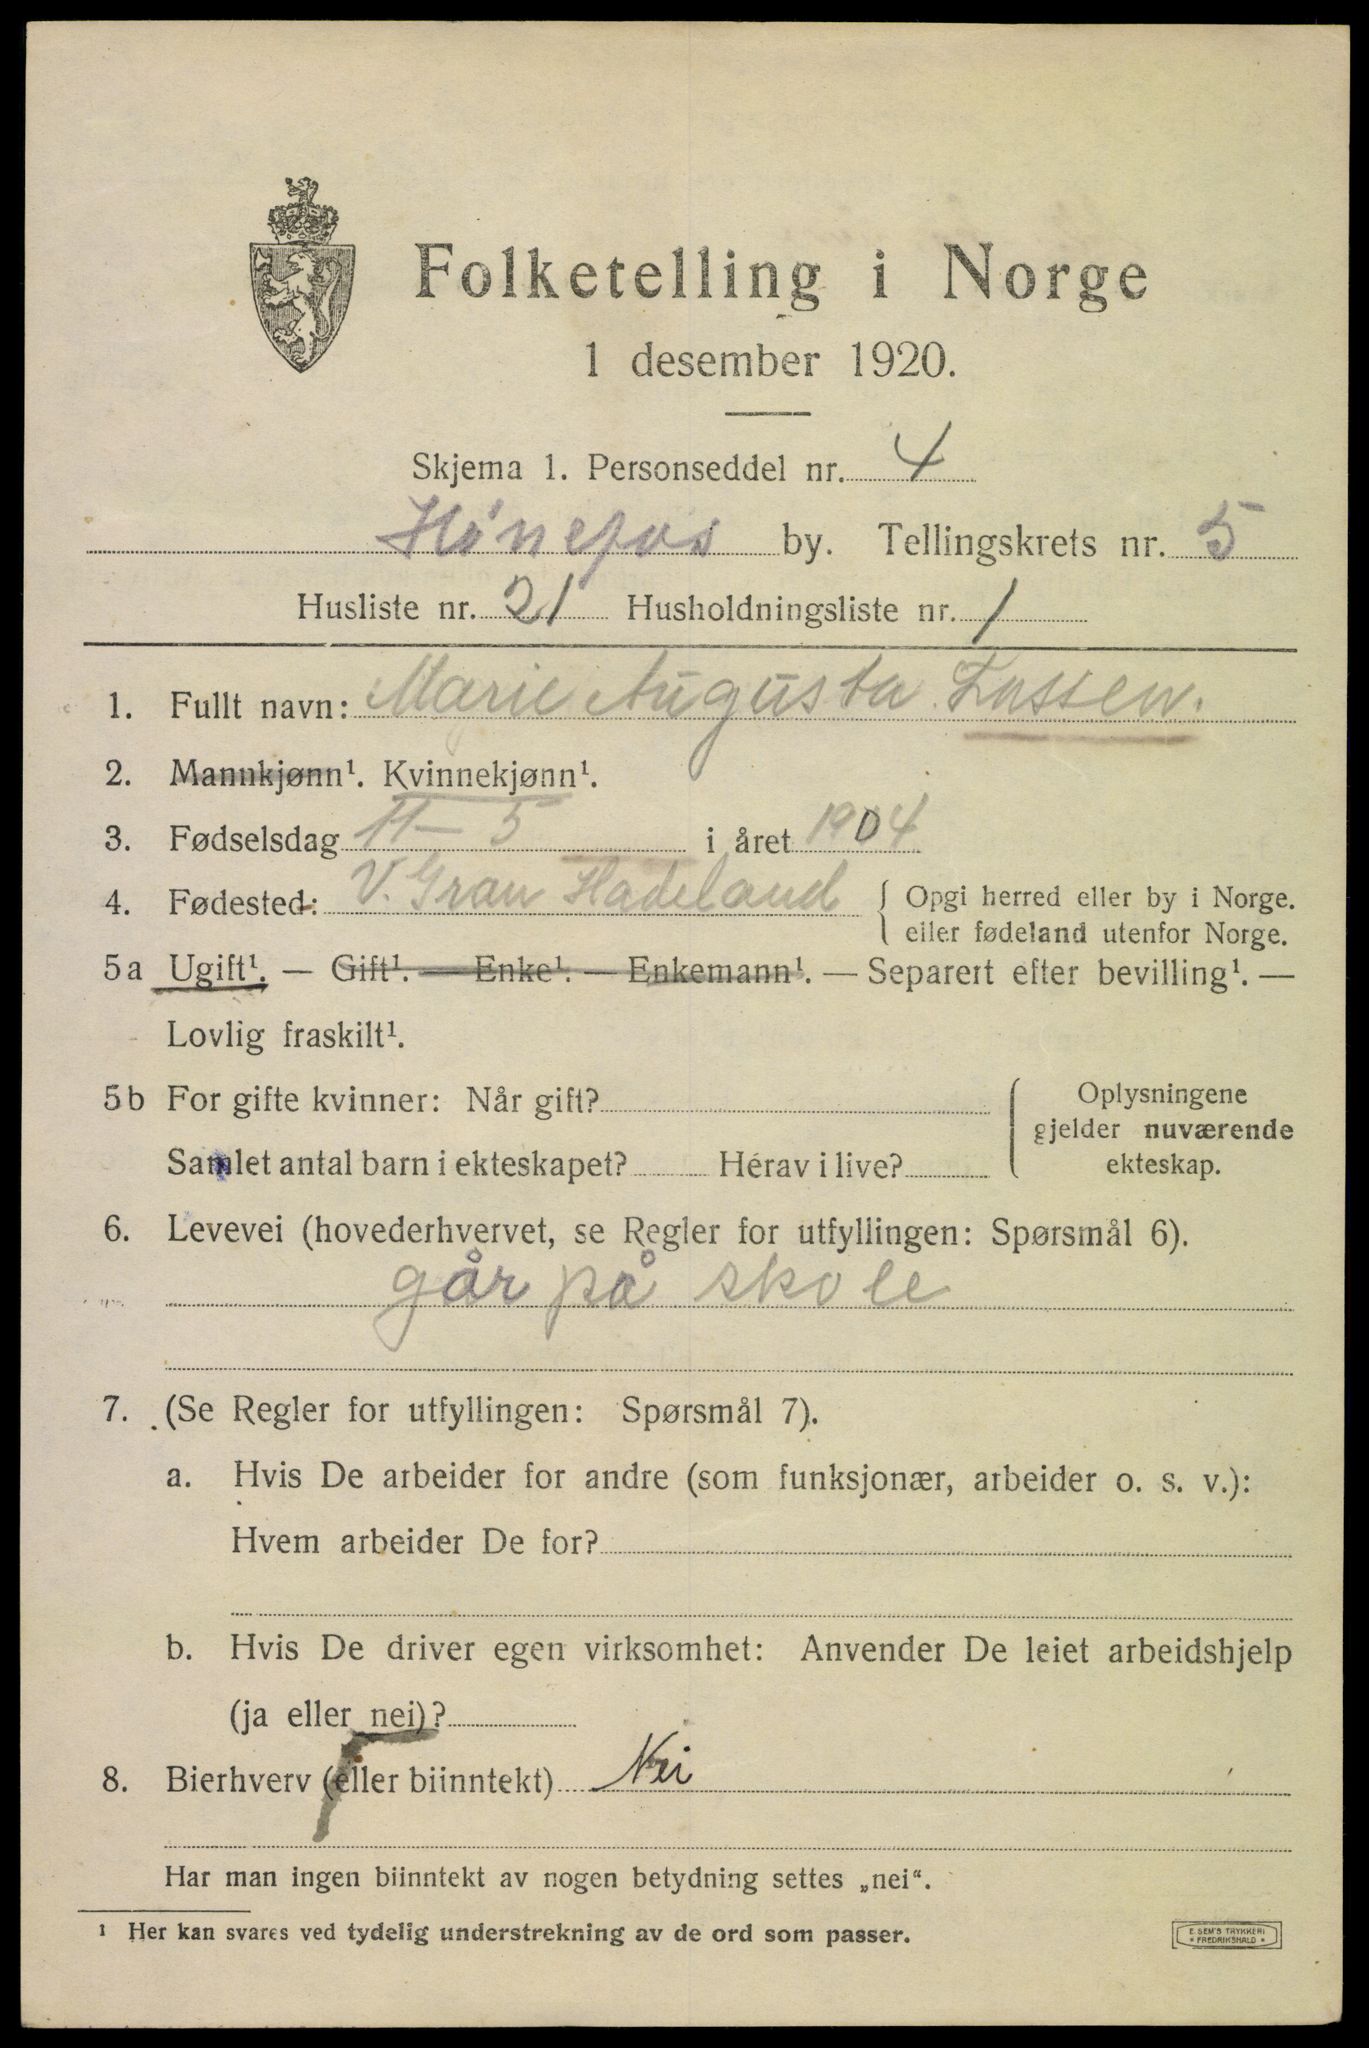 Folketelling i Norge
1 desember 1920.
Skjema 1. Personseddel nr. 4
Hönefos by. Tellingskrets nr. 5
Husliste nr. 21 Husholdningsliste nr. 1
1. Fullt navn: Marie Augusta Fossen.
2. Mannkjønn¹. Kvinnekjønn¹.
3. Fødselsdag 11-5 i året 1904
4. Fødested: V. Gran Hadeland { Opgi herred eller by i Norge.
eller fødeland utenfor Norge.
5a Ugift¹. — Gift¹. — Enke¹. — Enkemann¹. — Separert efter bevilling¹. —
Lovlig fraskilt¹.
5b For gifte kvinner: Når gift? Oplysningene
gjelder nuværende
Samlet antal barn i ekteskapet? Herav i live? ekteskap.
6. Levevei (hovederhvervet, se Regler for utfyllingen: Spørsmål 6).
går på skole
7. (Se Regler for utfyllingen: Spørsmål 7).
a. Hvis De arbeider for andre (som funksjonær, arbeider o. s. v.):
Hvem arbeider De for?
b. Hvis De driver egen virksomhet: Anvender De leiet arbeidshjelp
(ja eller nei)?
8. Bierhverv (eller biinntekt) Nei
Har man ingen biinntekt av nogen betydning settes „nei“.
¹ Her kan svares ved tydelig understrekning av de ord som passer.
E. SEM'S TRYKKERI
FREDRIKSHALD